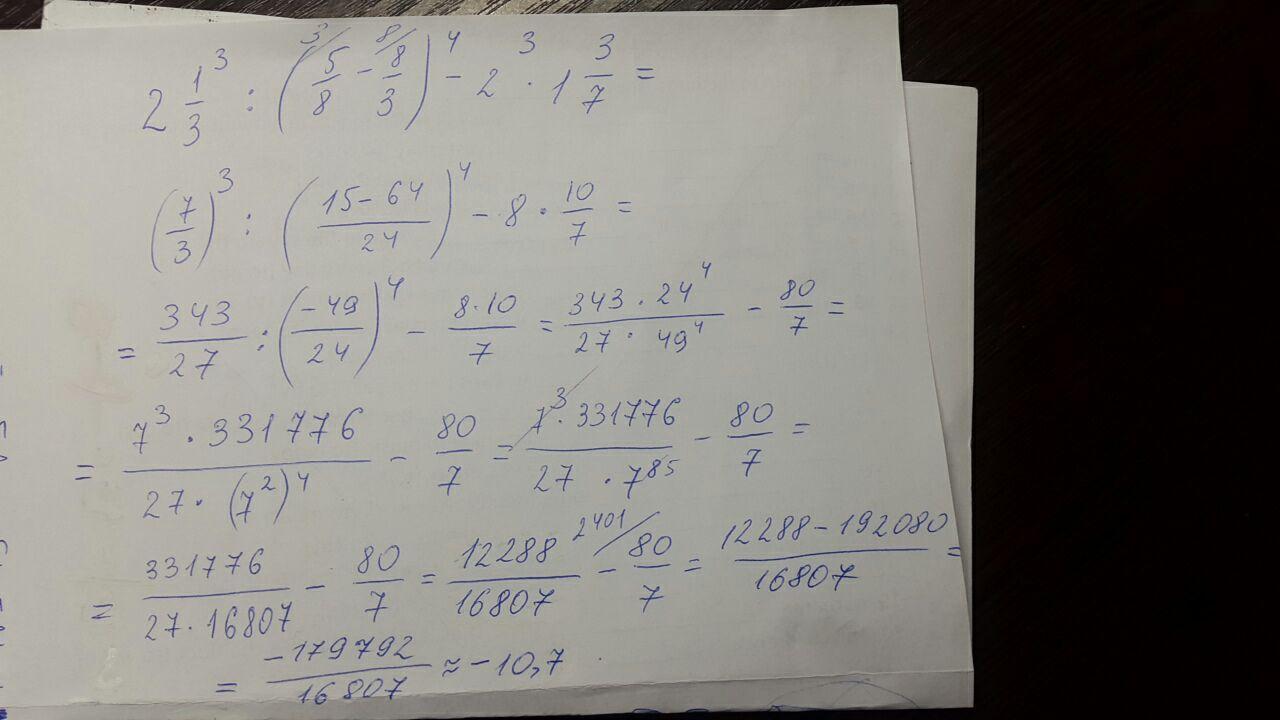 2 1/3 ³ : (³⁄ 5/8 − ⁸⁄ 8/3)⁴ − 2³ · 1 3/7 =
(7/3)³ : ((15 − 64)/24)⁴ − 8 · 10/7 =
= 343/27 : (−49/24)⁴ − (8·10)/7 = (343 · 24⁴)/(27 · 49⁴) − 80/7 =
= (7³ · 331776)/(27 · (7²)⁴) − 80/7 = (7³ · 331776)/(27 · 7⁸⁵) − 80/7 =
= 331776/(27 · 16807) − 80/7 = 12288/16807 − ²⁴⁰¹⁄ 80/7 = (12288 − 192080)/16807 =
= −179792/16807 ≈ −10,7